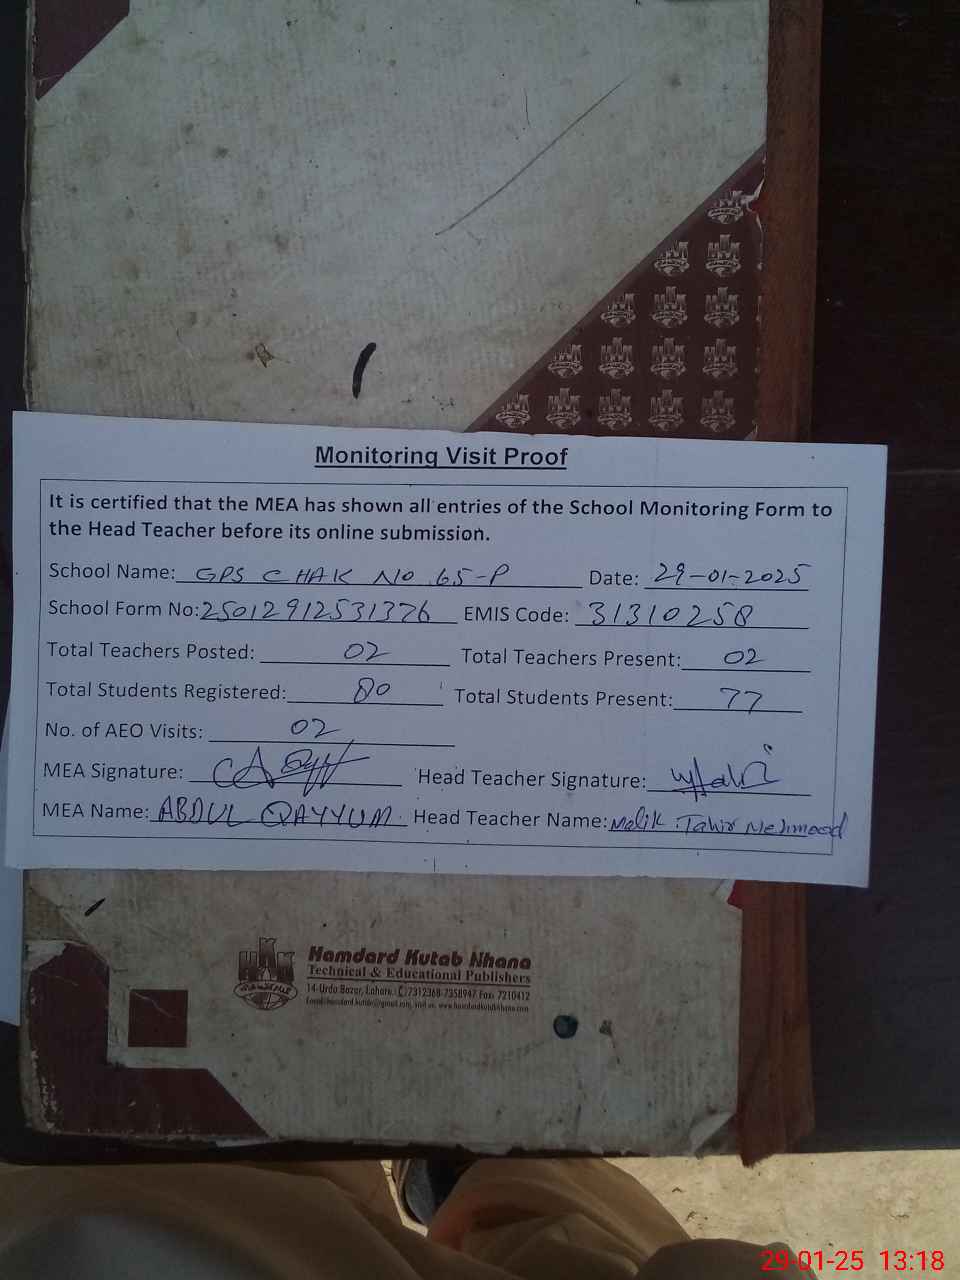 Monitoring Visit Proof
It is certified that the MEA has shown all entries of the School Monitoring Form to
the Head Teacher before its online submission.
School Name: GPS CHAK NO 65-P Date: 29-01-2025
School Form No: 25012912531376 EMIS Code: 31310258
Total Teachers Posted: 02 Total Teachers Present: 02
Total Students Registered: 80 Total Students Present: 77
No. of AEO Visits: 02
MEA Signature: Head Teacher Signature:
MEA Name: ABDUL QAYYUM. Head Teacher Name: Malik Tahir Mehmood
Hamdard Kutab Khana
Technical & Educational Publishers
14-Urdu Bazar, Lahore. 7312368-7358947 Fax: 7210412
29-01-25 13:18